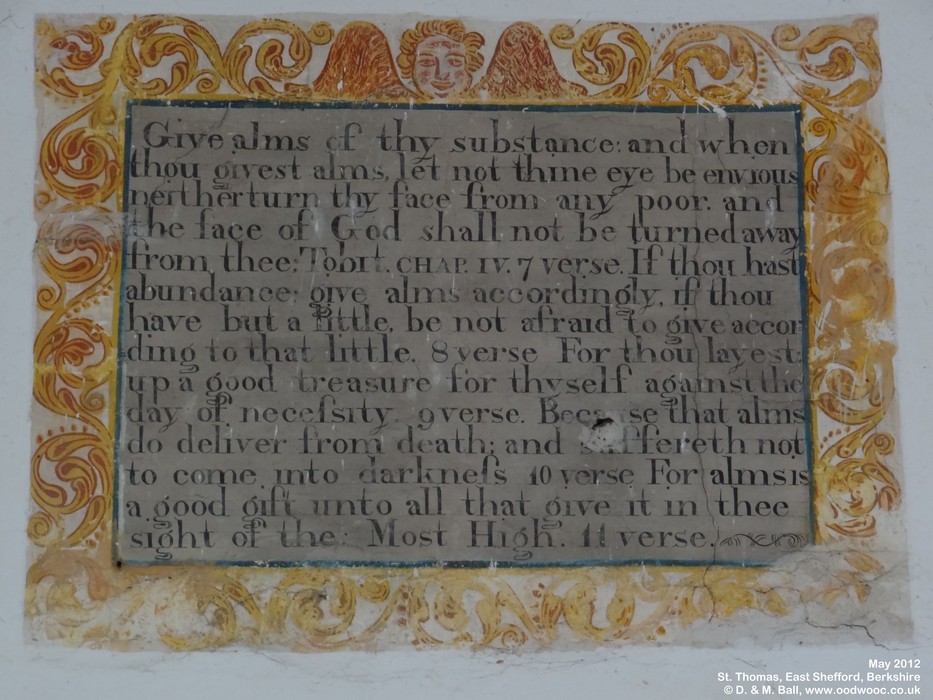 Give alms of thy substance: and when
thou givest alms, let not thine eye be envious
neither turn thy face from any poor. and
the face of God shall not be turned away
from thee: Tobit. CHAP. IV. 7 verse. If thou hast
abundance; give alms accordingly, if thou
have but a little, be not afraid to give accor
ding to that little. 8 verse For thou layest:
up a good treasure for thyself against the
day of neceſsity. 9 verse. Because that alms
do deliver from death; and suffereth not
to come into darkneſs 10 verse For alms is
a good gift unto all that give it in thee
sight of the: Most High. 11 verse.
May 2012
St. Thomas, East Shefford, Berkshire
© D. & M. Ball, www.oodwooc.co.uk